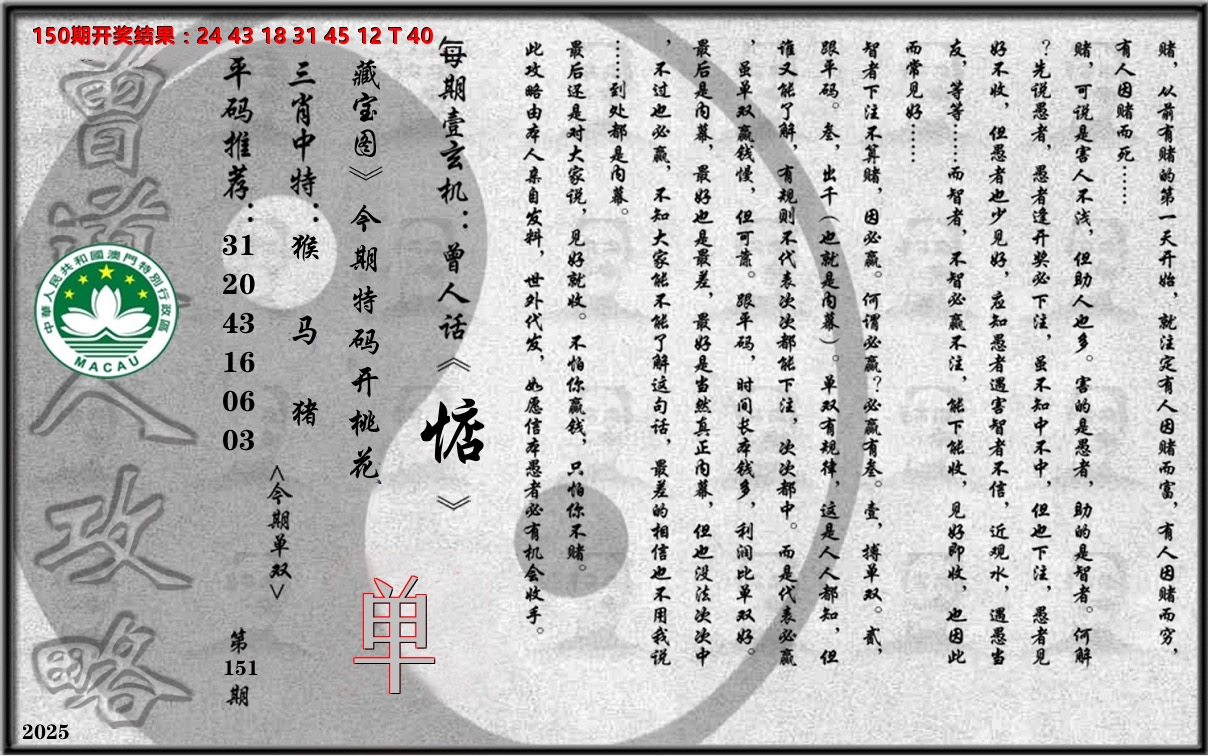 150期开奖结果：24 43 18 31 45 12 T 40
赌，从前有赌的第一天开始，就注定有人因赌而富，有人因赌而穷，
有人因赌而死……
赌，可说是害人不浅，但助人也多。害的是愚者，助的是智者。何解
？先说愚者，愚者逢开奖必下注，虽不知中不中，但也下注，愚者见
好不收，但愚者也少见好，应知愚者遇害智者不信，近观水，遇愚当
友，等等……而智者，不智必赢不注，能下能收，见好即收，也因此
而常见好……
智者下注不算赌，因必赢。何谓必赢？必赢有叁。壹，搏单双。贰，
跟平码。叁，出千（也就是内幕）。单双有规律，这是人人都知，但
谁又能了解，有规则不代表次次都能下注，次次都中。而是代表必赢
，虽单双赢钱慢，但可靠。跟平码，时间长本钱多，利润比单双好。
最后是内幕，最好也是最差，最好是当然真正内幕，但也没法次次中
，不过也必赢，不知大家能不能了解这句话，最差的相信也不用我说
……到处都是内幕。
最后还是对大家说，见好就收。不怕你赢钱，只怕你不赌。
此攻略由本人亲自发料，世外代发，如愿信本愚者必有机会收手。
每期壹玄机：曾人话《惦》
藏宝图》今期特码开桃花
单
三肖中特：猴 马 猪
<今期单双>
平码推荐：31 20 43 16 06 03
第151期
曾道人攻略
中華人民共和國澳門特別行政區
MACAU
2025